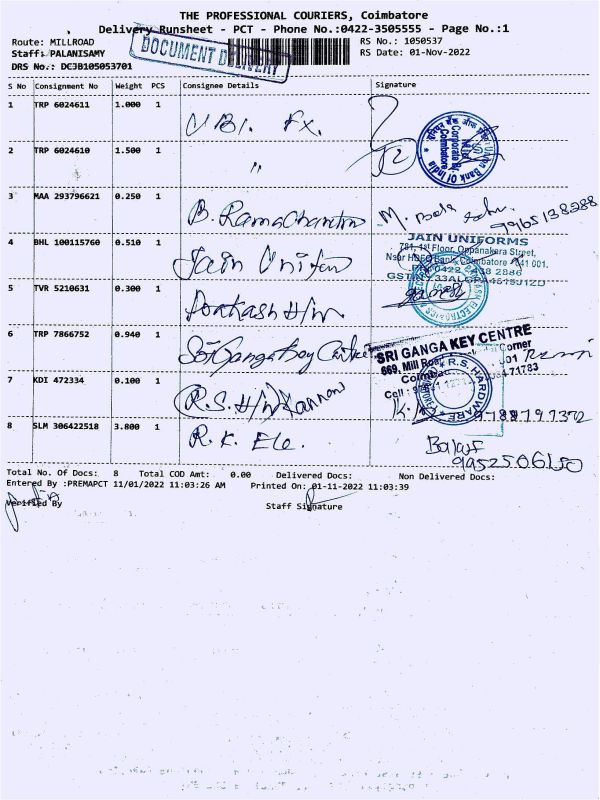 THE PROFESSIONAL COURIERS, Coimbatore
Delivery Runsheet - PCT - Phone No.:0422-3505555 - Page No.:1
Route: MILLROAD
RS No.: 1050537
Staff: PALANISAMY
RS Date: 01-Nov-2022
DRS No.: DCJB105053701
DOCUMENT DELIVERY
S No Consignment No Weight PCS Consignee Details Signature
1 TRP 6024611 1.000 1 UBI. Fx.
2 TRP 6024610 1.500 1 "
Union Bank Of India
Corporate Br.
Coimbatore
3 MAA 293796621 0.250 1 B. RamaChandran M.
9965138288
4 BHL 100115760 0.510 1 Jain Uniform
JAIN UNIFORMS
781, 1st Floor, Oppanakara Street,
Near HDFC Bank, Coimbatore 641 001.
5 TVR 5210631 0.300 1 Prakash H/w
6 TRP 7866752 0.940 1 Sri Ganga Key Centre
SRI GANGA KEY CENTRE
669, Mill Road, Corner
7 KDI 472334 0.100 1 R.S. H/w Kannan
R.S. HARDWARE
9788797372
8 SLM 306422518 3.800 1 R.K. Ele. Balaji
9952506150
Total No. Of Docs: 8 Total COD Amt: 0.00 Delivered Docs: Non Delivered Docs:
Entered By :PREMAPCT 11/01/2022 11:03:26 AM Printed On: 01-11-2022 11:03:39
Verified By Staff Signature